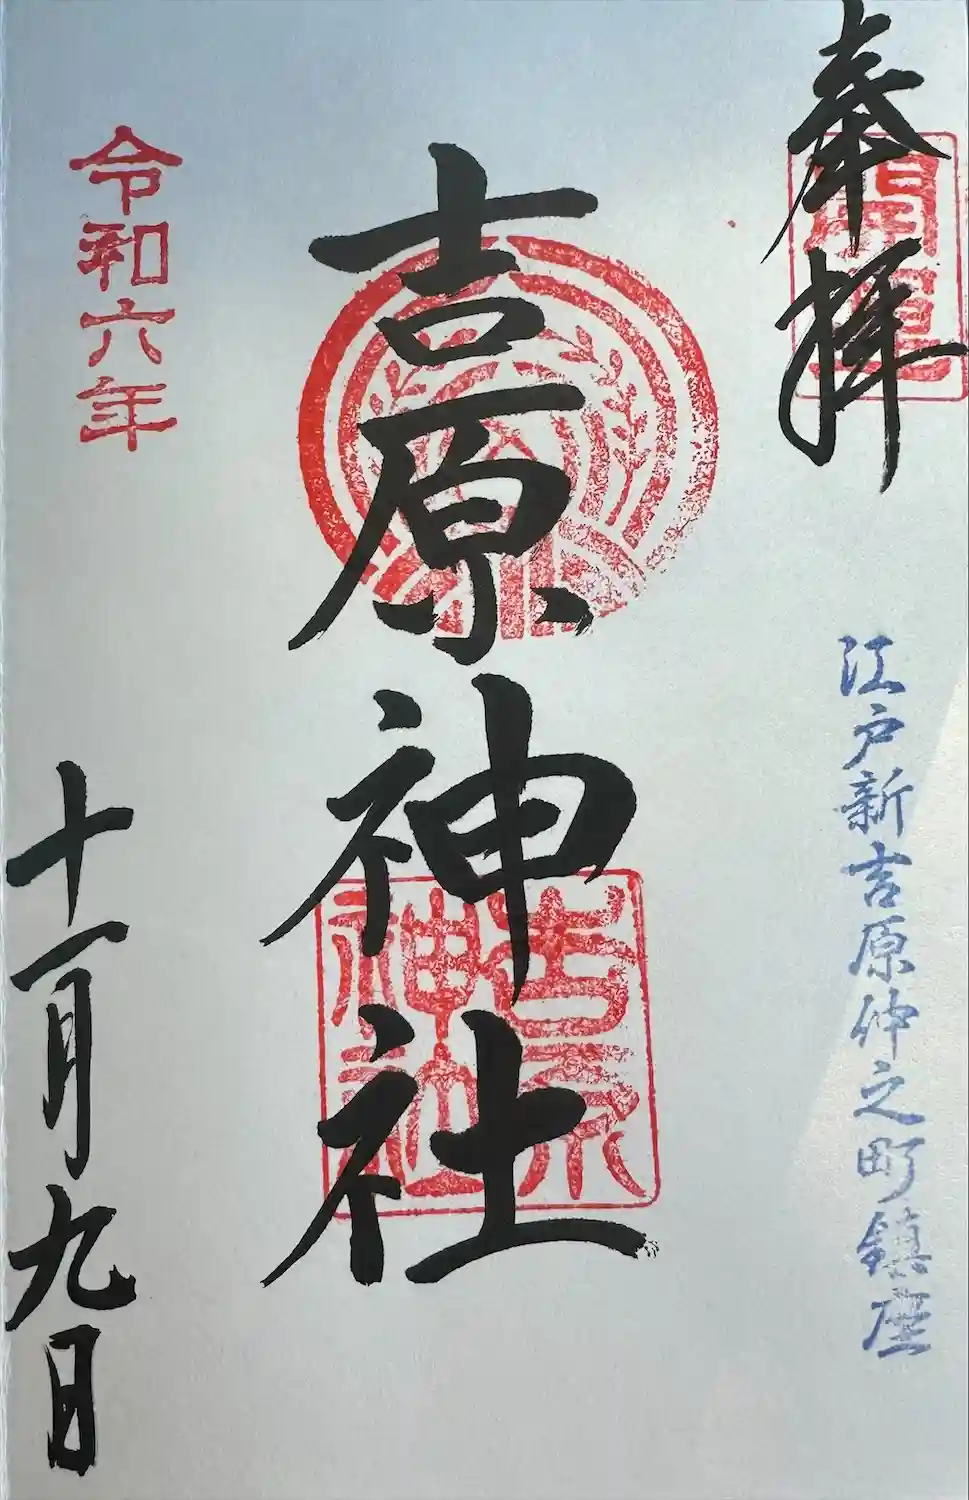 奉拝
開運
江戸新吉原仲之町鎮座
吉原神社
吉原
神社
令和六年
十一月九日